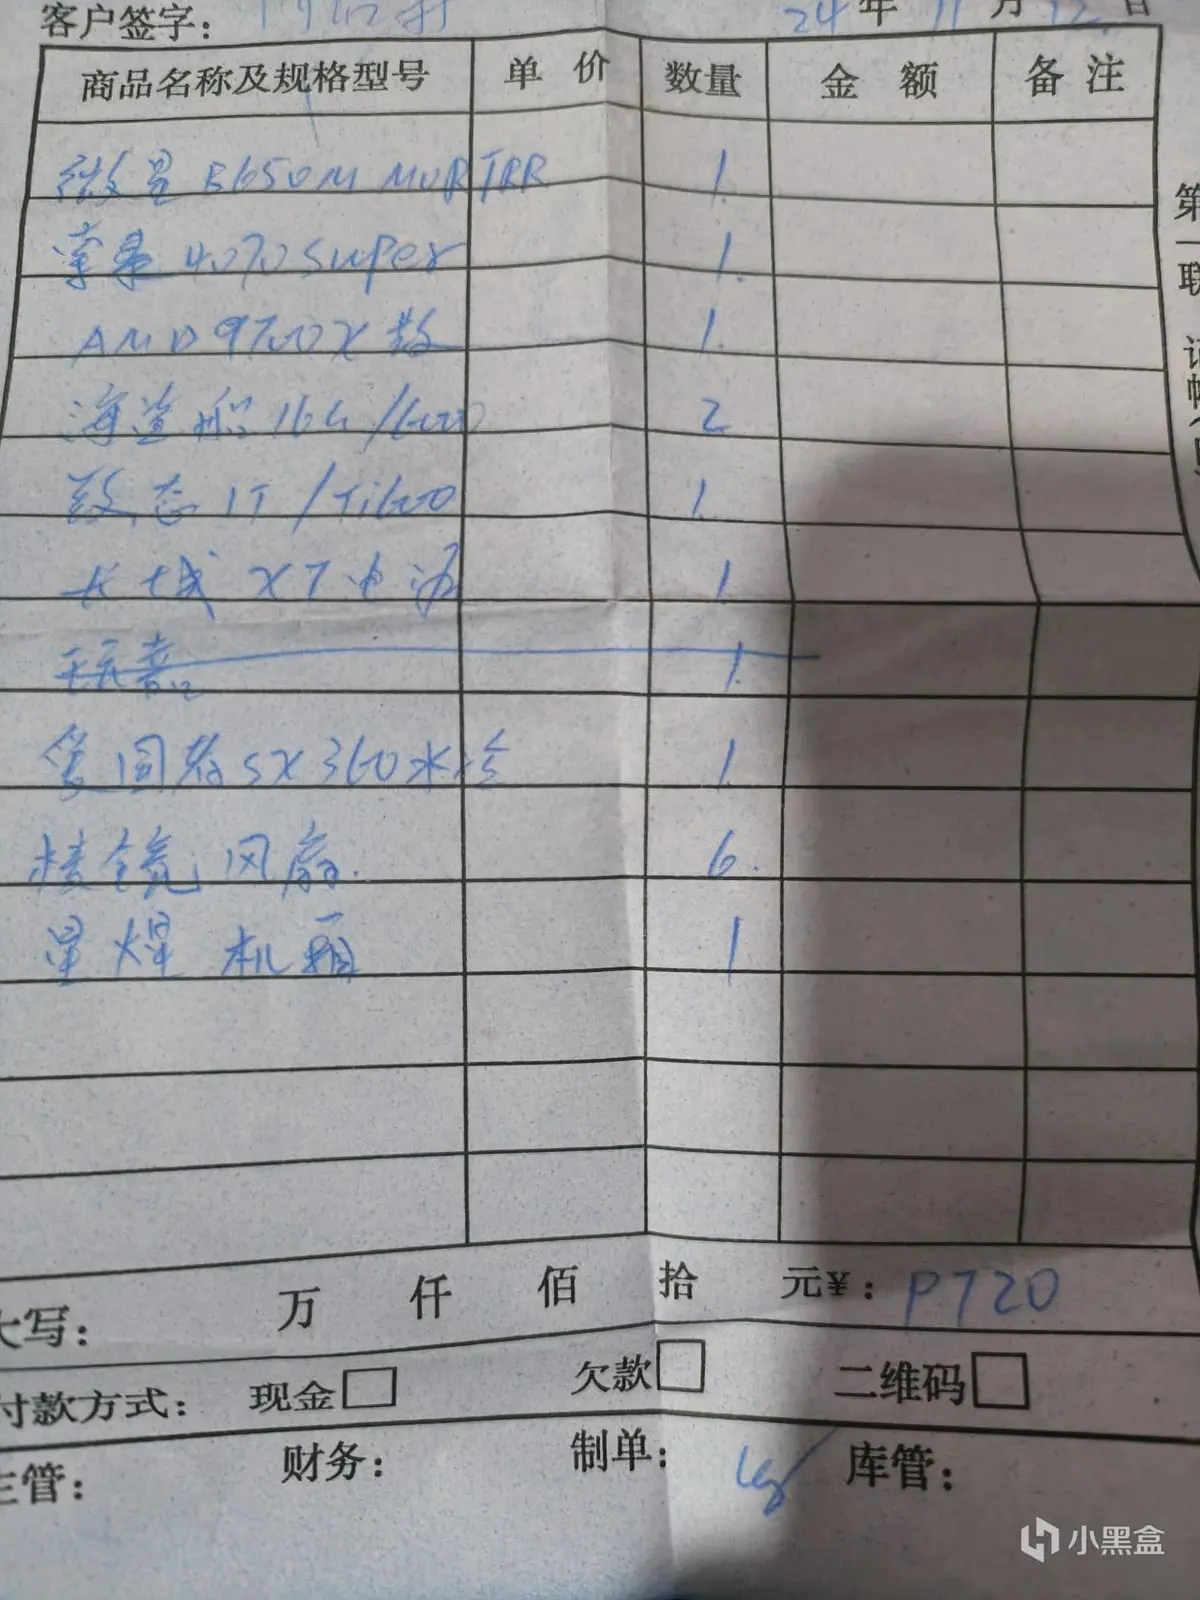 客户签字： 24 年 11 月 12 日
商品名称及规格型号 单价 数量 金额 备注
微星 B650M MORTRR 1.
索泰 4070 super 1.
AMD 9700X 散 1.
海盗船 16G/6000 2
致态 1T/Ti600 1.
长城 X7 电源 1.
1.
SX360水冷 1.
棱镜 风扇. 6.
星煌 机箱 1
第一联
大写： 万 仟 佰 拾 元¥： 9720
付款方式： 现金 欠款 二维码
主管： 财务： 制单： 库管：
小黑盒